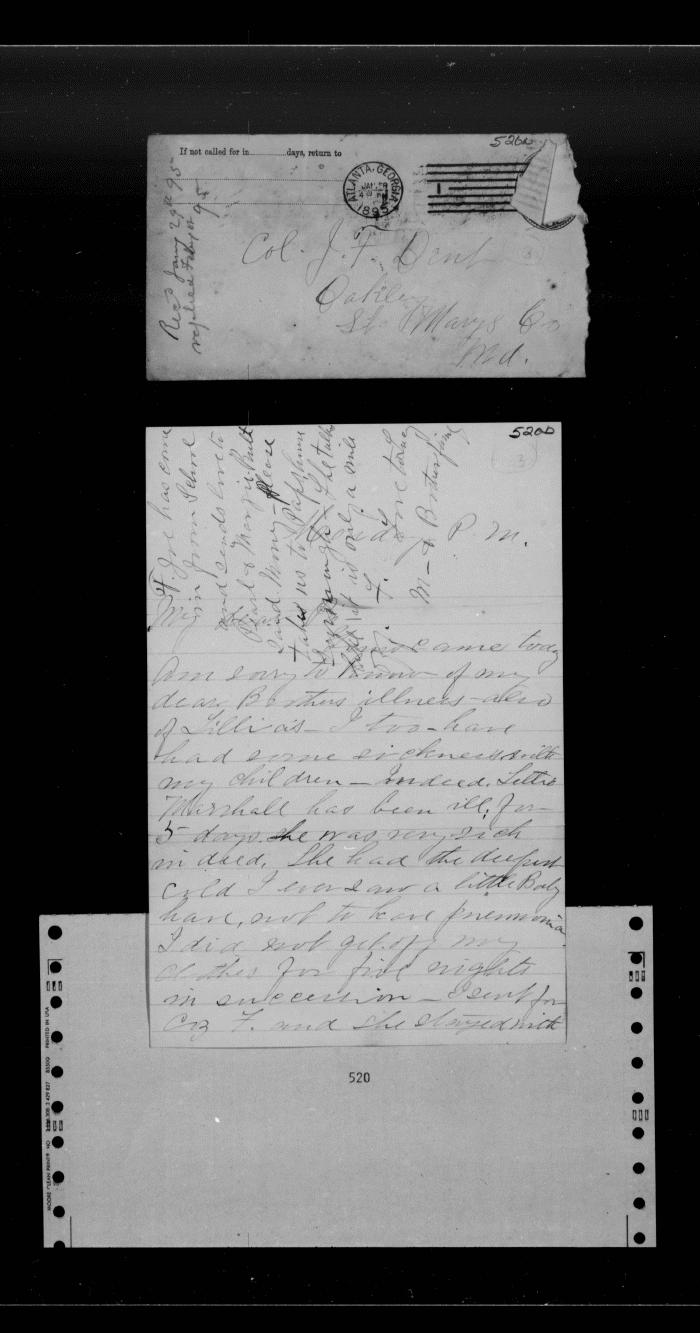 520a
If not called for in............days, return to
ATLANTA, GEORGIA
1895
Rec'd Jany 29th 95
replied Feby
95
Col. J. F. Dent
Oakley
St. Marys Co
Md.
520b
3
F. Joe has come
in from School
and sends love to
Pearl & Margie Ruth
and Mony - please
takes us to
it is only a mile
P. M.
My
came today
Am sorry to know of my
dear Brothers illness - also
of Lillia's - I too - have
had some sickness with
my children - Indeed. Lettie
Marshall has been ill, for
5 days. She was very sick
indeed. She had the deepest
cold I ever saw a little Baby
have, not to have pneumonia
I did not get off my
clothes for five nights
in succession - I sent for
F. and she stayed with
520
MOORE CLEAN PRINT
PRINTED IN USA